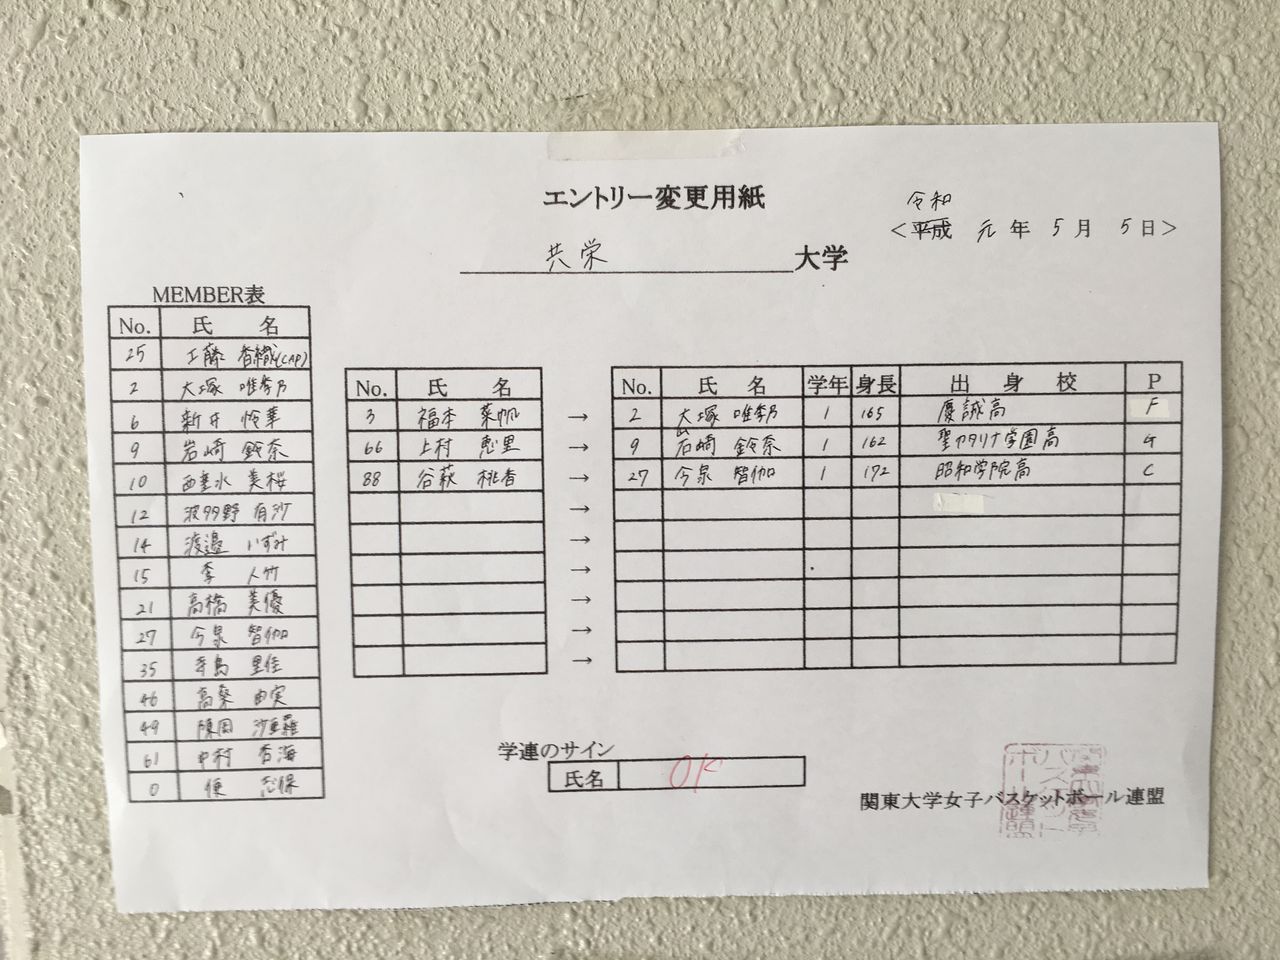 エントリー変更用紙
令和
<平成 元 年 5 月 5 日>
共栄 大学
MEMBER表
No. 氏 名
25 工藤 香織(CAP)
2 大塚 唯
6 新井 怜華
9 岩崎 鈴奈
10 西垂水 美桜
12 波多野 有沙
14 渡邉 いずみ
15 李 人竹
21 高橋 美優
27 今泉 智伽
35 寺島 里佳
46 高桑 由実
49 陳岡 沙亜羅
61 中村 香海
0 志保
No. 氏 名
3 福本 菜帆
66 上村 恵里
88 谷萩 桃香
→
→
→
→
→
→
→
→
→
No. 氏 名 学年 身長 出 身 校 P
2 大塚 唯 1 165 慶誠高 F
9 岩崎 鈴奈 1 162 聖カタリナ学園高 G
27 今泉 智伽 1 172 昭和学院高 C
学連のサイン
氏名 OK
関東大学女子バスケットボール連盟